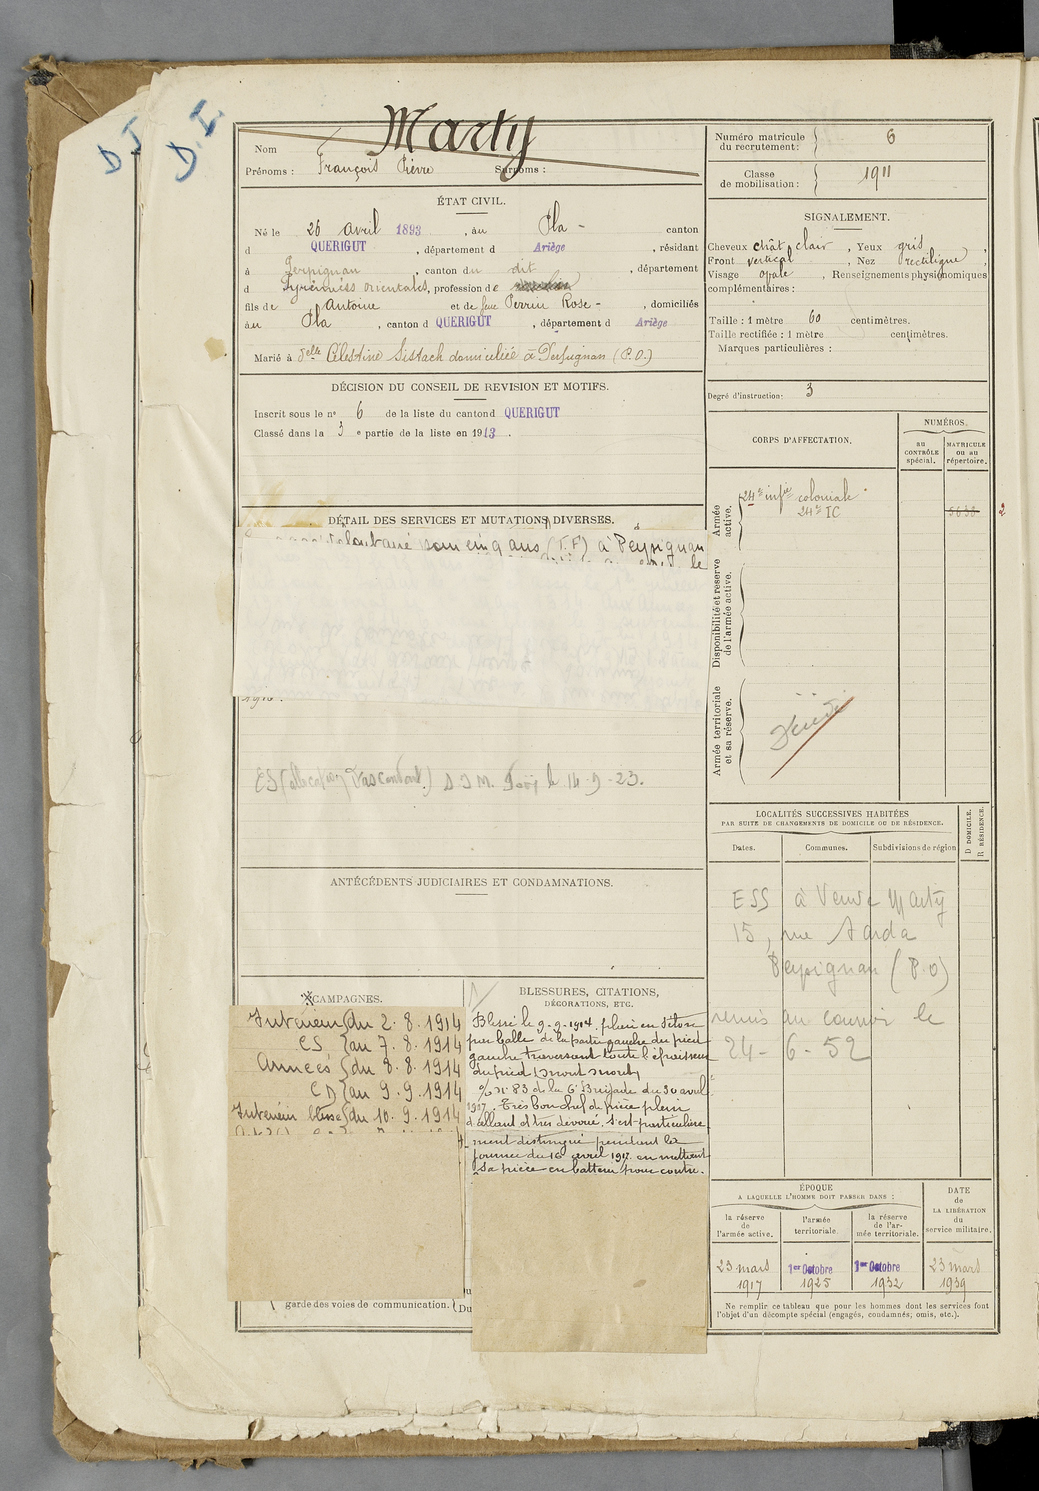 D.I.
D.I.
Marty
Nom
Prénoms : François Pierre Surnoms :
ÉTAT CIVIL.
Né le 26 avril 1893, au Pla - canton
d QUERIGUT, département d Ariège, résidant
à Perpignan, canton du dit, département
d Pyrénées orientales, profession de
fils de Antoine et de feue Perrin Rose -, domiciliés
au Pla, canton d QUERIGUT, département d Ariège
Marié à Delle Célestine Sistach domiciliée à Perpignan (P.O.)
DÉCISION DU CONSEIL DE REVISION ET MOTIFS.
Inscrit sous le n° 6 de la liste du canton d QUERIGUT
Classé dans la 3 e partie de la liste en 1913.
DÉTAIL DES SERVICES ET MUTATIONS DIVERSES.
cinq ans à Perpignan
le
D I M. le 14-9-23.
ANTÉCÉDENTS JUDICIAIRES ET CONDAMNATIONS.
CAMPAGNES.
Intérieur du 2.8.1914
CS au 7.8.1914
Armées du 8.8.1914
CD au 9.9.1914
Intérieur blessé du 10.9.1914
garde des voies de communication. Du
BLESSURES, CITATIONS,
DÉCORATIONS, ETC.
Blessé le 9-9-1914, plaie en séton
par balle de la partie gauche du pied
gauche traversant toute l'épaisseur
du pied
o/ n° 83 de la 6e Brigade du 30 avril
1917. Très bon chef de pièce plein
d'allant et très dévoué. s'est particulière
ment distingué pendant la
journée du 16 avril 1917 en mettant
sa pièce en batterie pour contre.
Numéro matricule du recrutement : 6
Classe de mobilisation : 1911
SIGNALEMENT.
Cheveux chât clair, Yeux gris,
Front vertical, Nez rectiligne,
Visage ovale, Renseignements physionomiques
complémentaires :
Taille : 1 mètre 60 centimètres.
Taille rectifiée : 1 mètre centimètres.
Marques particulières :
Degré d'instruction : 3
CORPS D'AFFECTATION.
NUMÉROS.
au CONTRÔLE spécial.
MATRICULE ou au répertoire.
Armée active.
24e infie coloniale
24e IC
2
Disponibilité et réserve de l'armée active.
Armée territoriale et sa réserve.
LOCALITÉS SUCCESSIVES HABITÉES
PAR SUITE DE CHANGEMENTS DE DOMICILE OU DE RÉSIDENCE.
Dates.
Communes.
Subdivisions de région
D DOMICILE.
R RÉSIDENCE.
ESS à Veuve Marty
15, rue
Perpignan (P.O)
remis au courrier le
24-6-52
ÉPOQUE
A LAQUELLE L'HOMME DOIT PASSER DANS :
la réserve de l'armée active.
l'armée territoriale.
la réserve de l'armée territoriale.
DATE de LA LIBÉRATION du service militaire.
23 mars 1917
1er Octobre 1925
1er Octobre 1932
23 mars 1939
Ne remplir ce tableau que pour les hommes dont les services font
l'objet d'un décompte spécial (engagés, condamnés, omis, etc.).